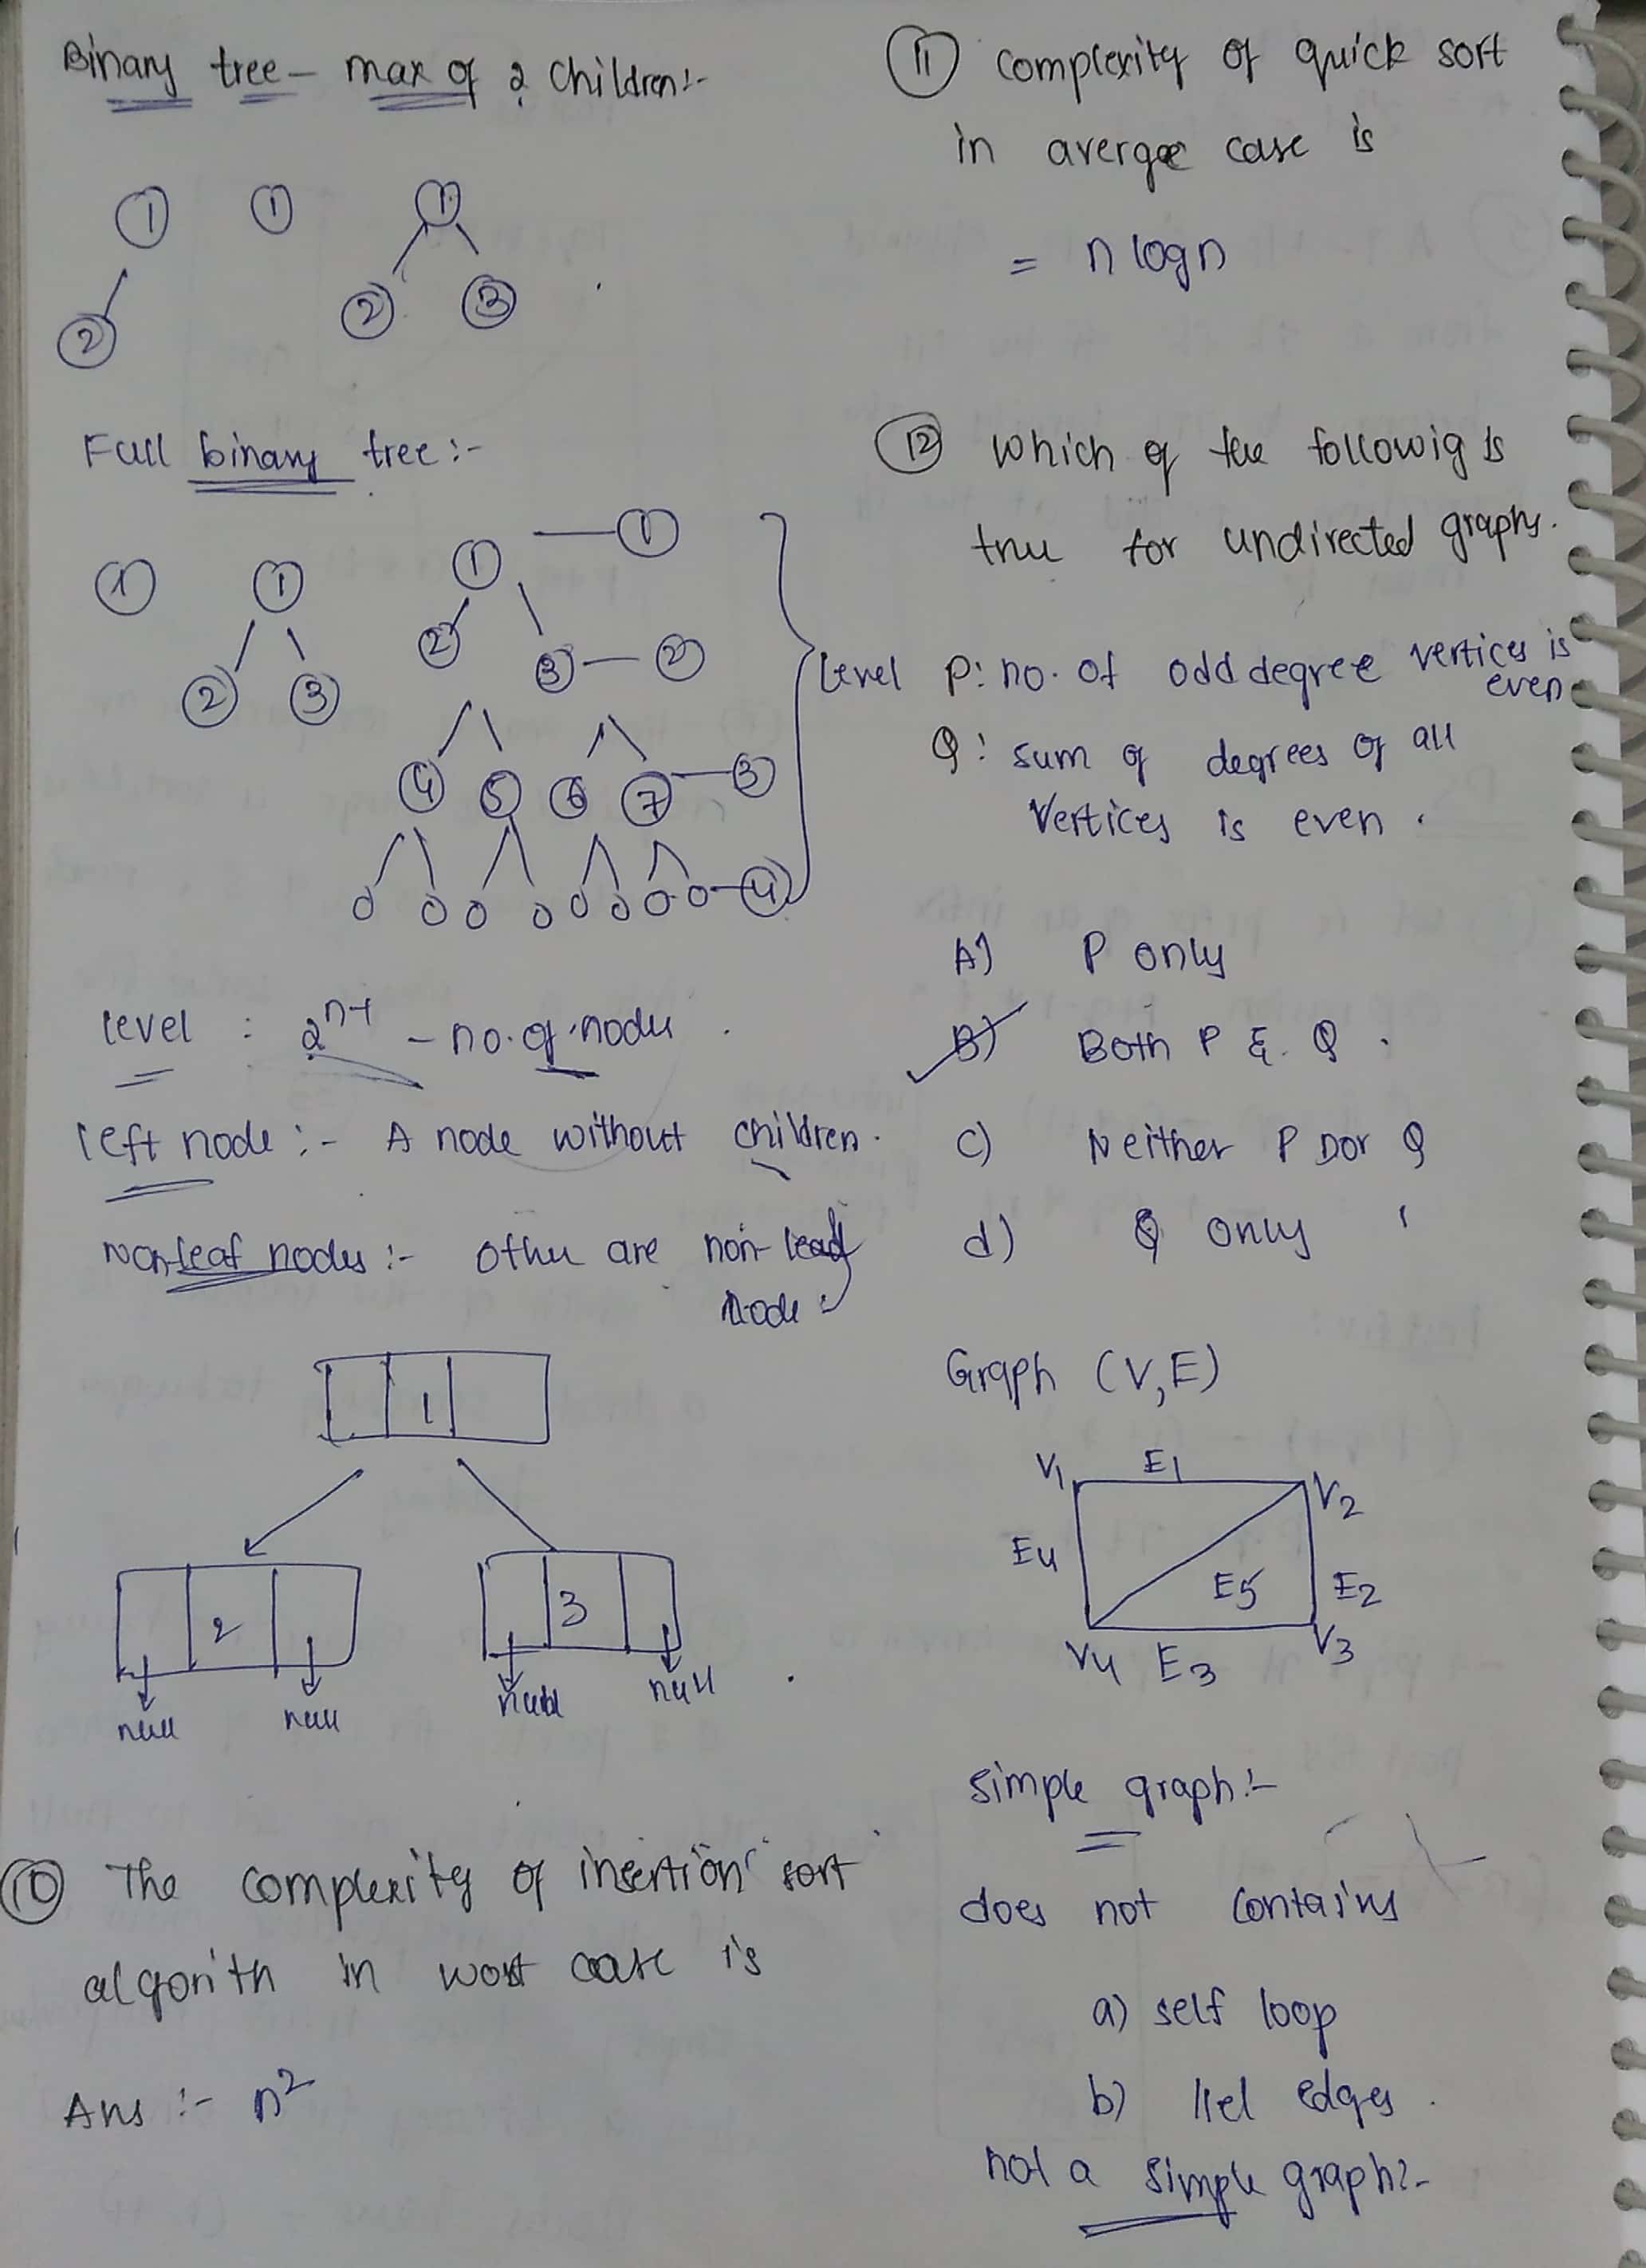 Binary tree - max of 2 children:-
1 1 1
2 2 3
Full binary tree :-
1 1 1 1
2 3 2 3 2
4 5 6 7 3
4
level
level : 2^n-1 - no. of nodes.
left node :- A node without children.
Non-leaf nodes :- other are non-leaf
node :
1
2 3
null null null null
10 The complexity of insertion sort
algorith in worst case is
Ans :- n²
11 complexity of quick sort
in averge case is
= n logn
12 which of the followig is
true for undirected graphs.
P: no. of odd degree vertices is
even
Q: sum of degrees of all
vertices is even.
A) P only
B) Both P & Q.
C) Neither P nor Q
d) Q only
Graph (V,E)
V1 E1 V2
E4 E5 E2
V4 E3 V3
simple graph:-
does not contains
a) self loop
b) llel edges.
not a simple graph:-